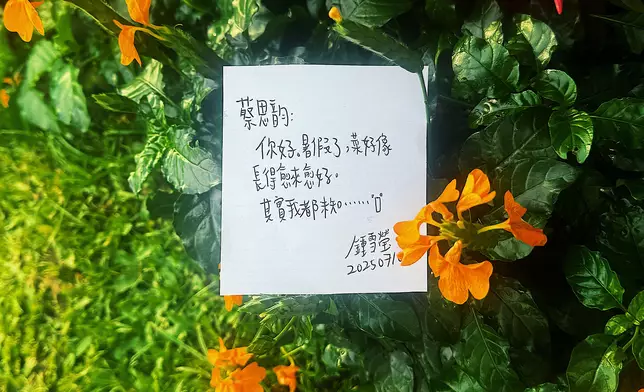 蔡思韵:
你好。暑假了,菜好像
長得愈來愈好。
其實我都未知……
鍾雪瑩
2025071